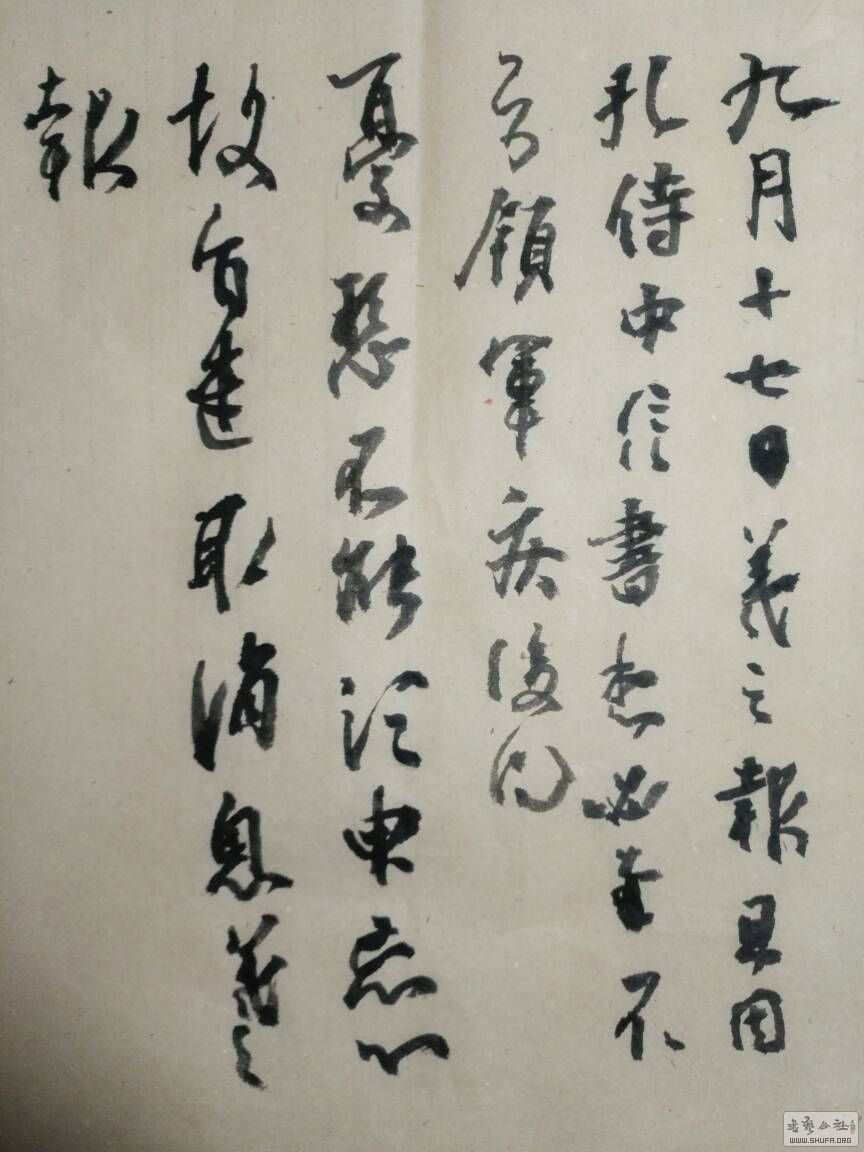 九月十七日羲之報且因
孔侍中信書想必至不
知領軍疾後問
憂懸不能須臾忘心
故旨遣取消息羲之
報
書藝公社
WWW.SHUFA.ORG